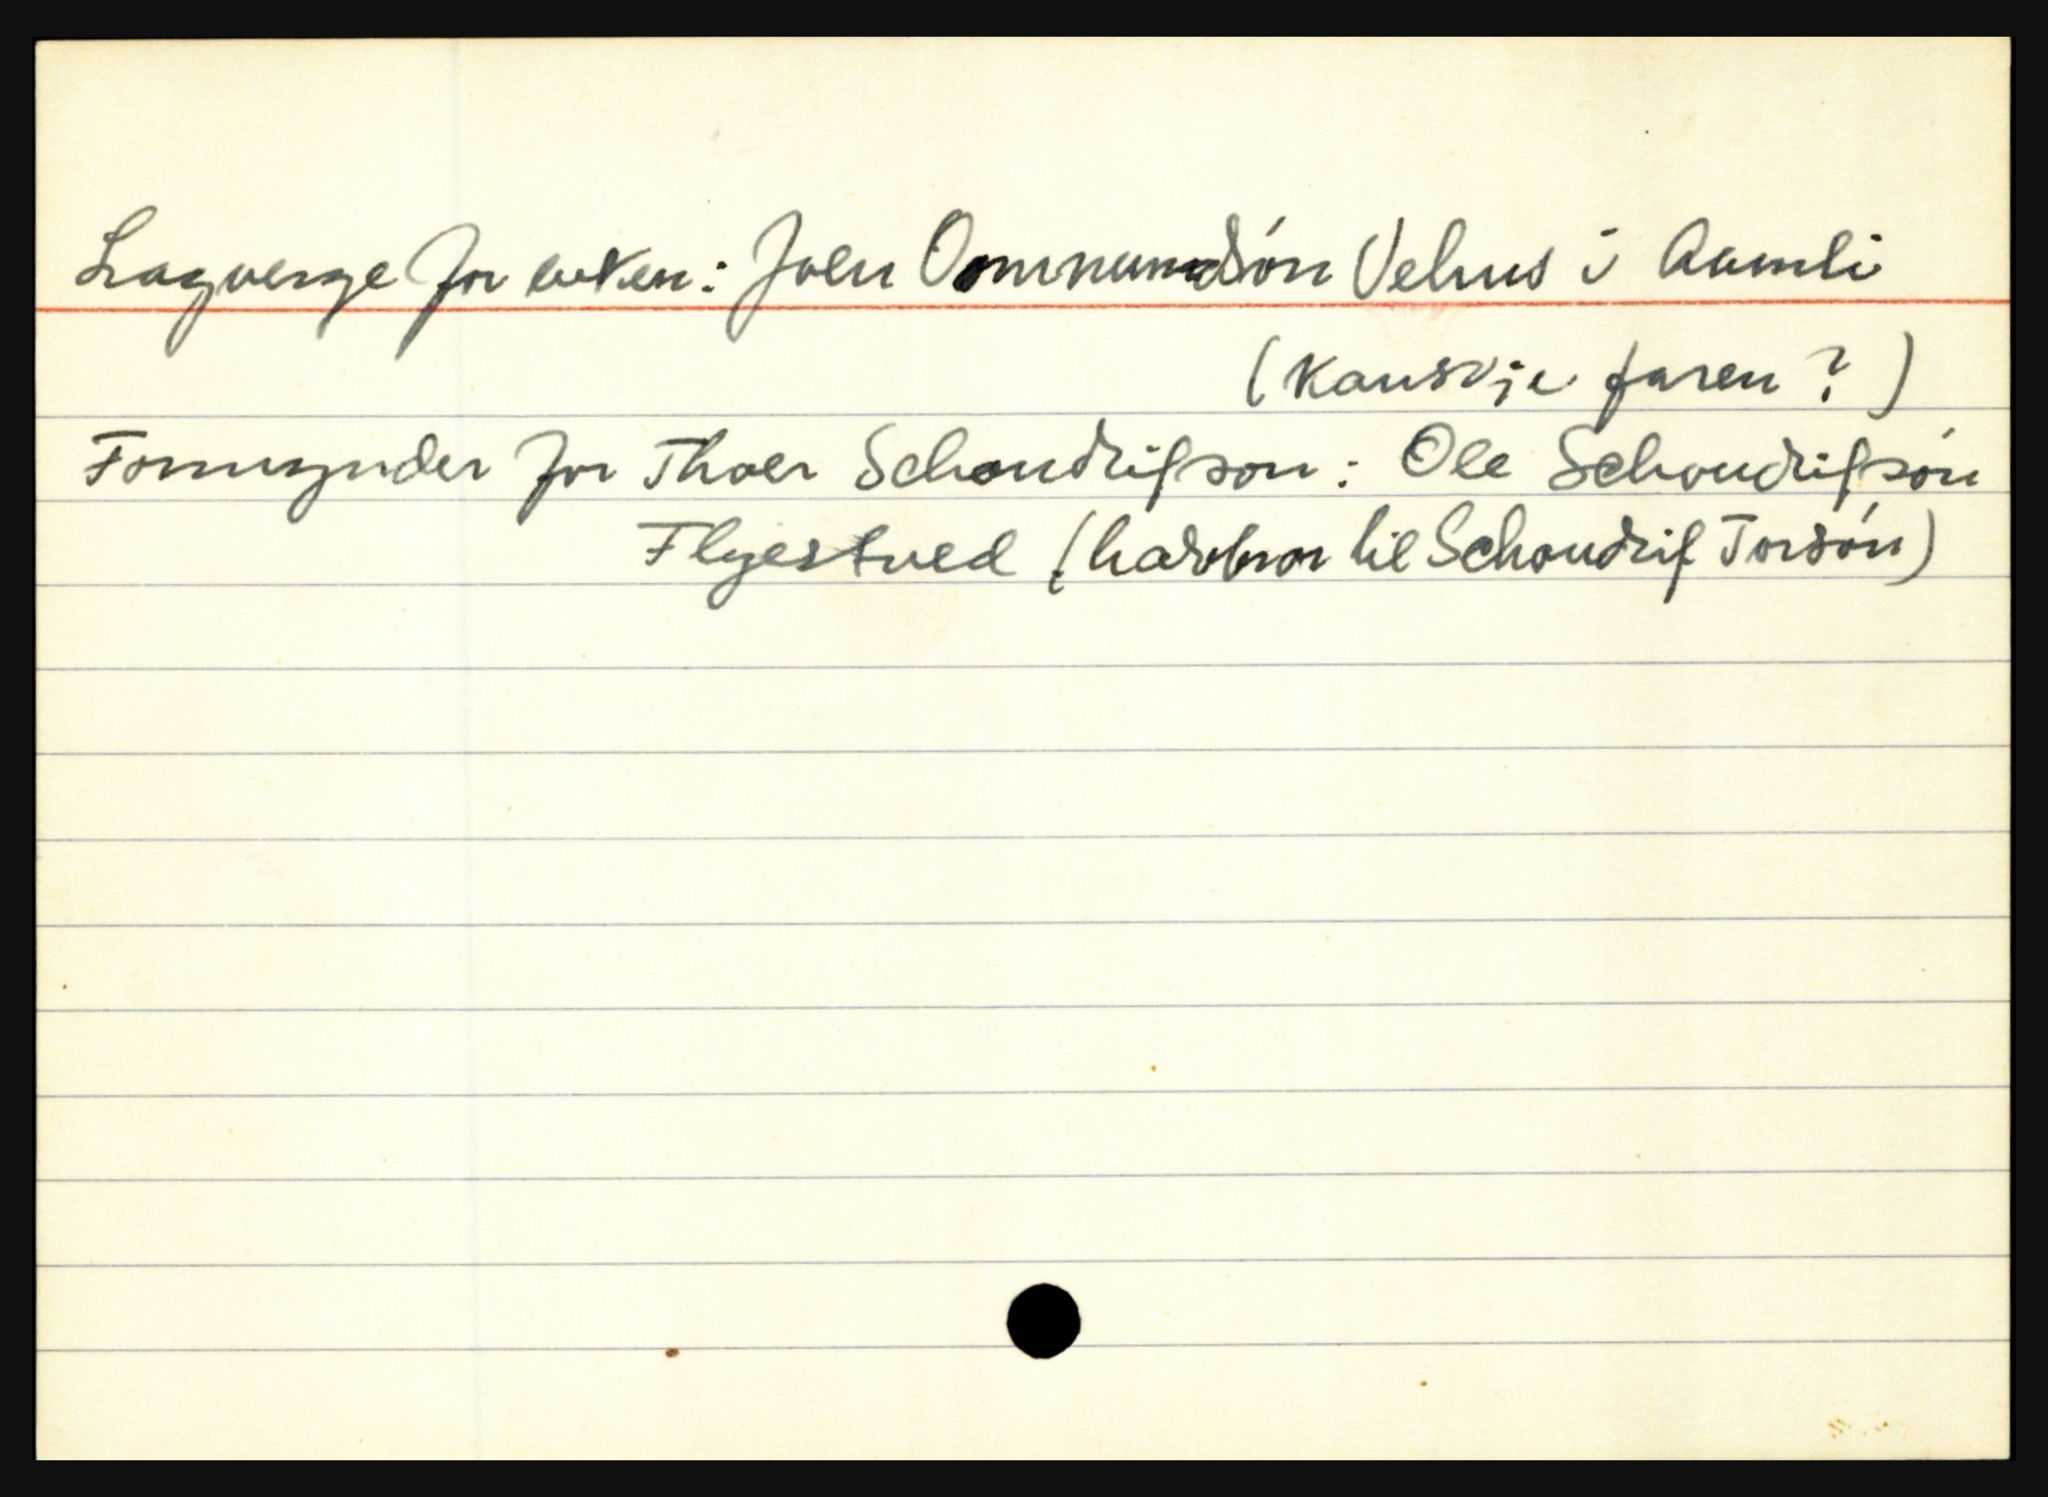 Lagverge for enken: Joen Ommundsón Vehus i Aamli
(Kanskje faren?)
Formynder for Thoer Schoudrifson: Ole Schoudrifsón
Flyestved (halvbror til Schoudrif Torsón)